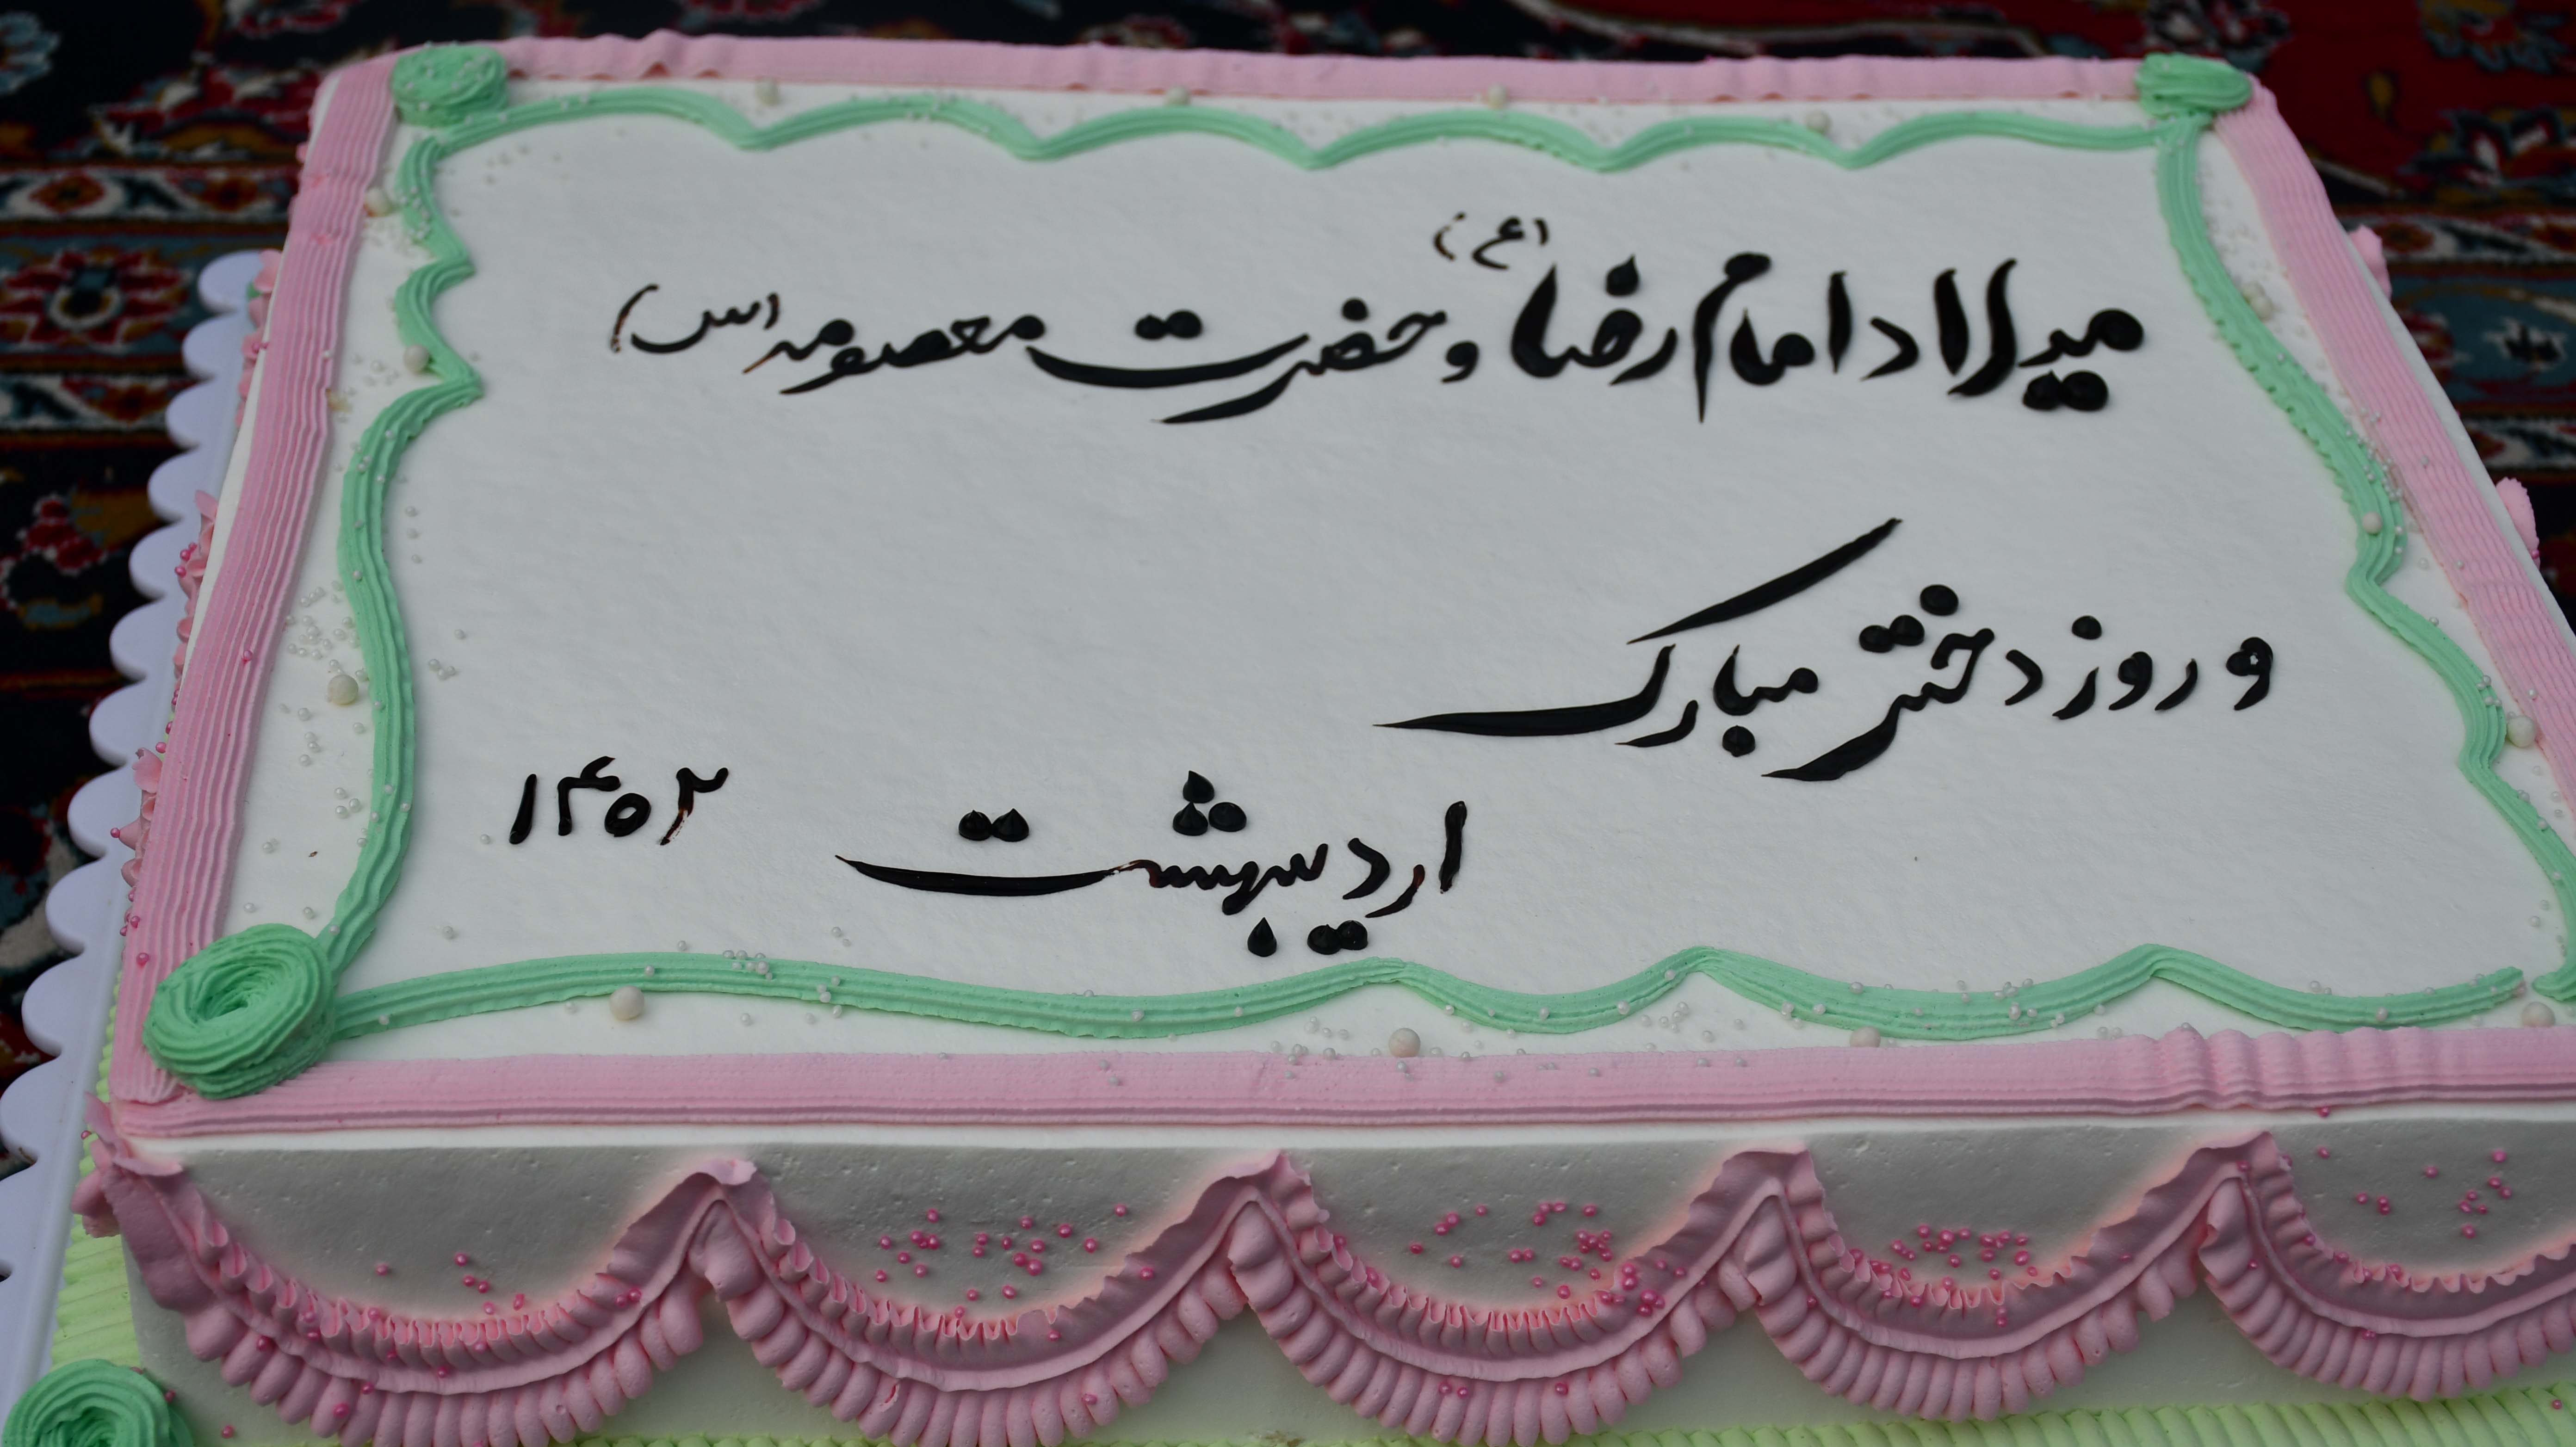 میلاد امام رضا (ع) و حضرت معصومه (س)
و روز دختر مبارک
اردیبهشت ۱۴۰۲